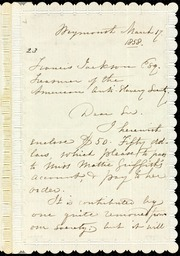 Weymouth March 17
1858.
Francis Jackson Esq.
Treasurer of the
American Anti Slavery Society
Dear Sir,
I herewith
enclose $50. Fifty dol-
lars, which please to pay
to Miss Mattie Griffith's
account, & pay to her
order.
It is contributed by
one quite removed from
our society but it will